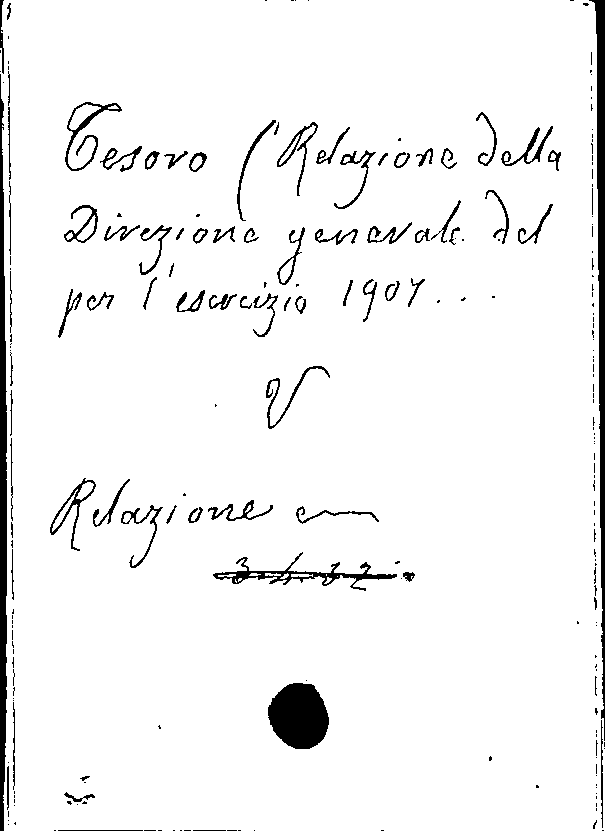 Tesoro (Relazione della
Direzione generale del
per l'esercizio 1907...
V
Relazione